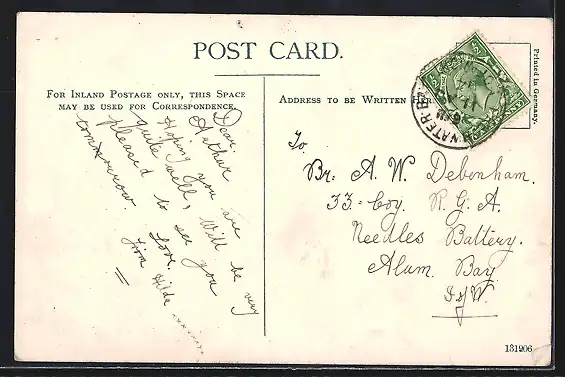 POST CARD.
FOR INLAND POSTAGE ONLY, THIS SPACE
MAY BE USED FOR CORRESPONDENCE.
ADDRESS TO BE WRITTEN HER
Printed in Germany.
Dear
Arthur
Hoping you are
quite well, Will be very
pleased to see you
tomorrow
Love.
from Hilda
xxxxxxxx
To
Br. A. W. Debenham.
33. Coy. R. G. A.
Needles Battery.
Alum Bay
I of W.
WATER B
131906